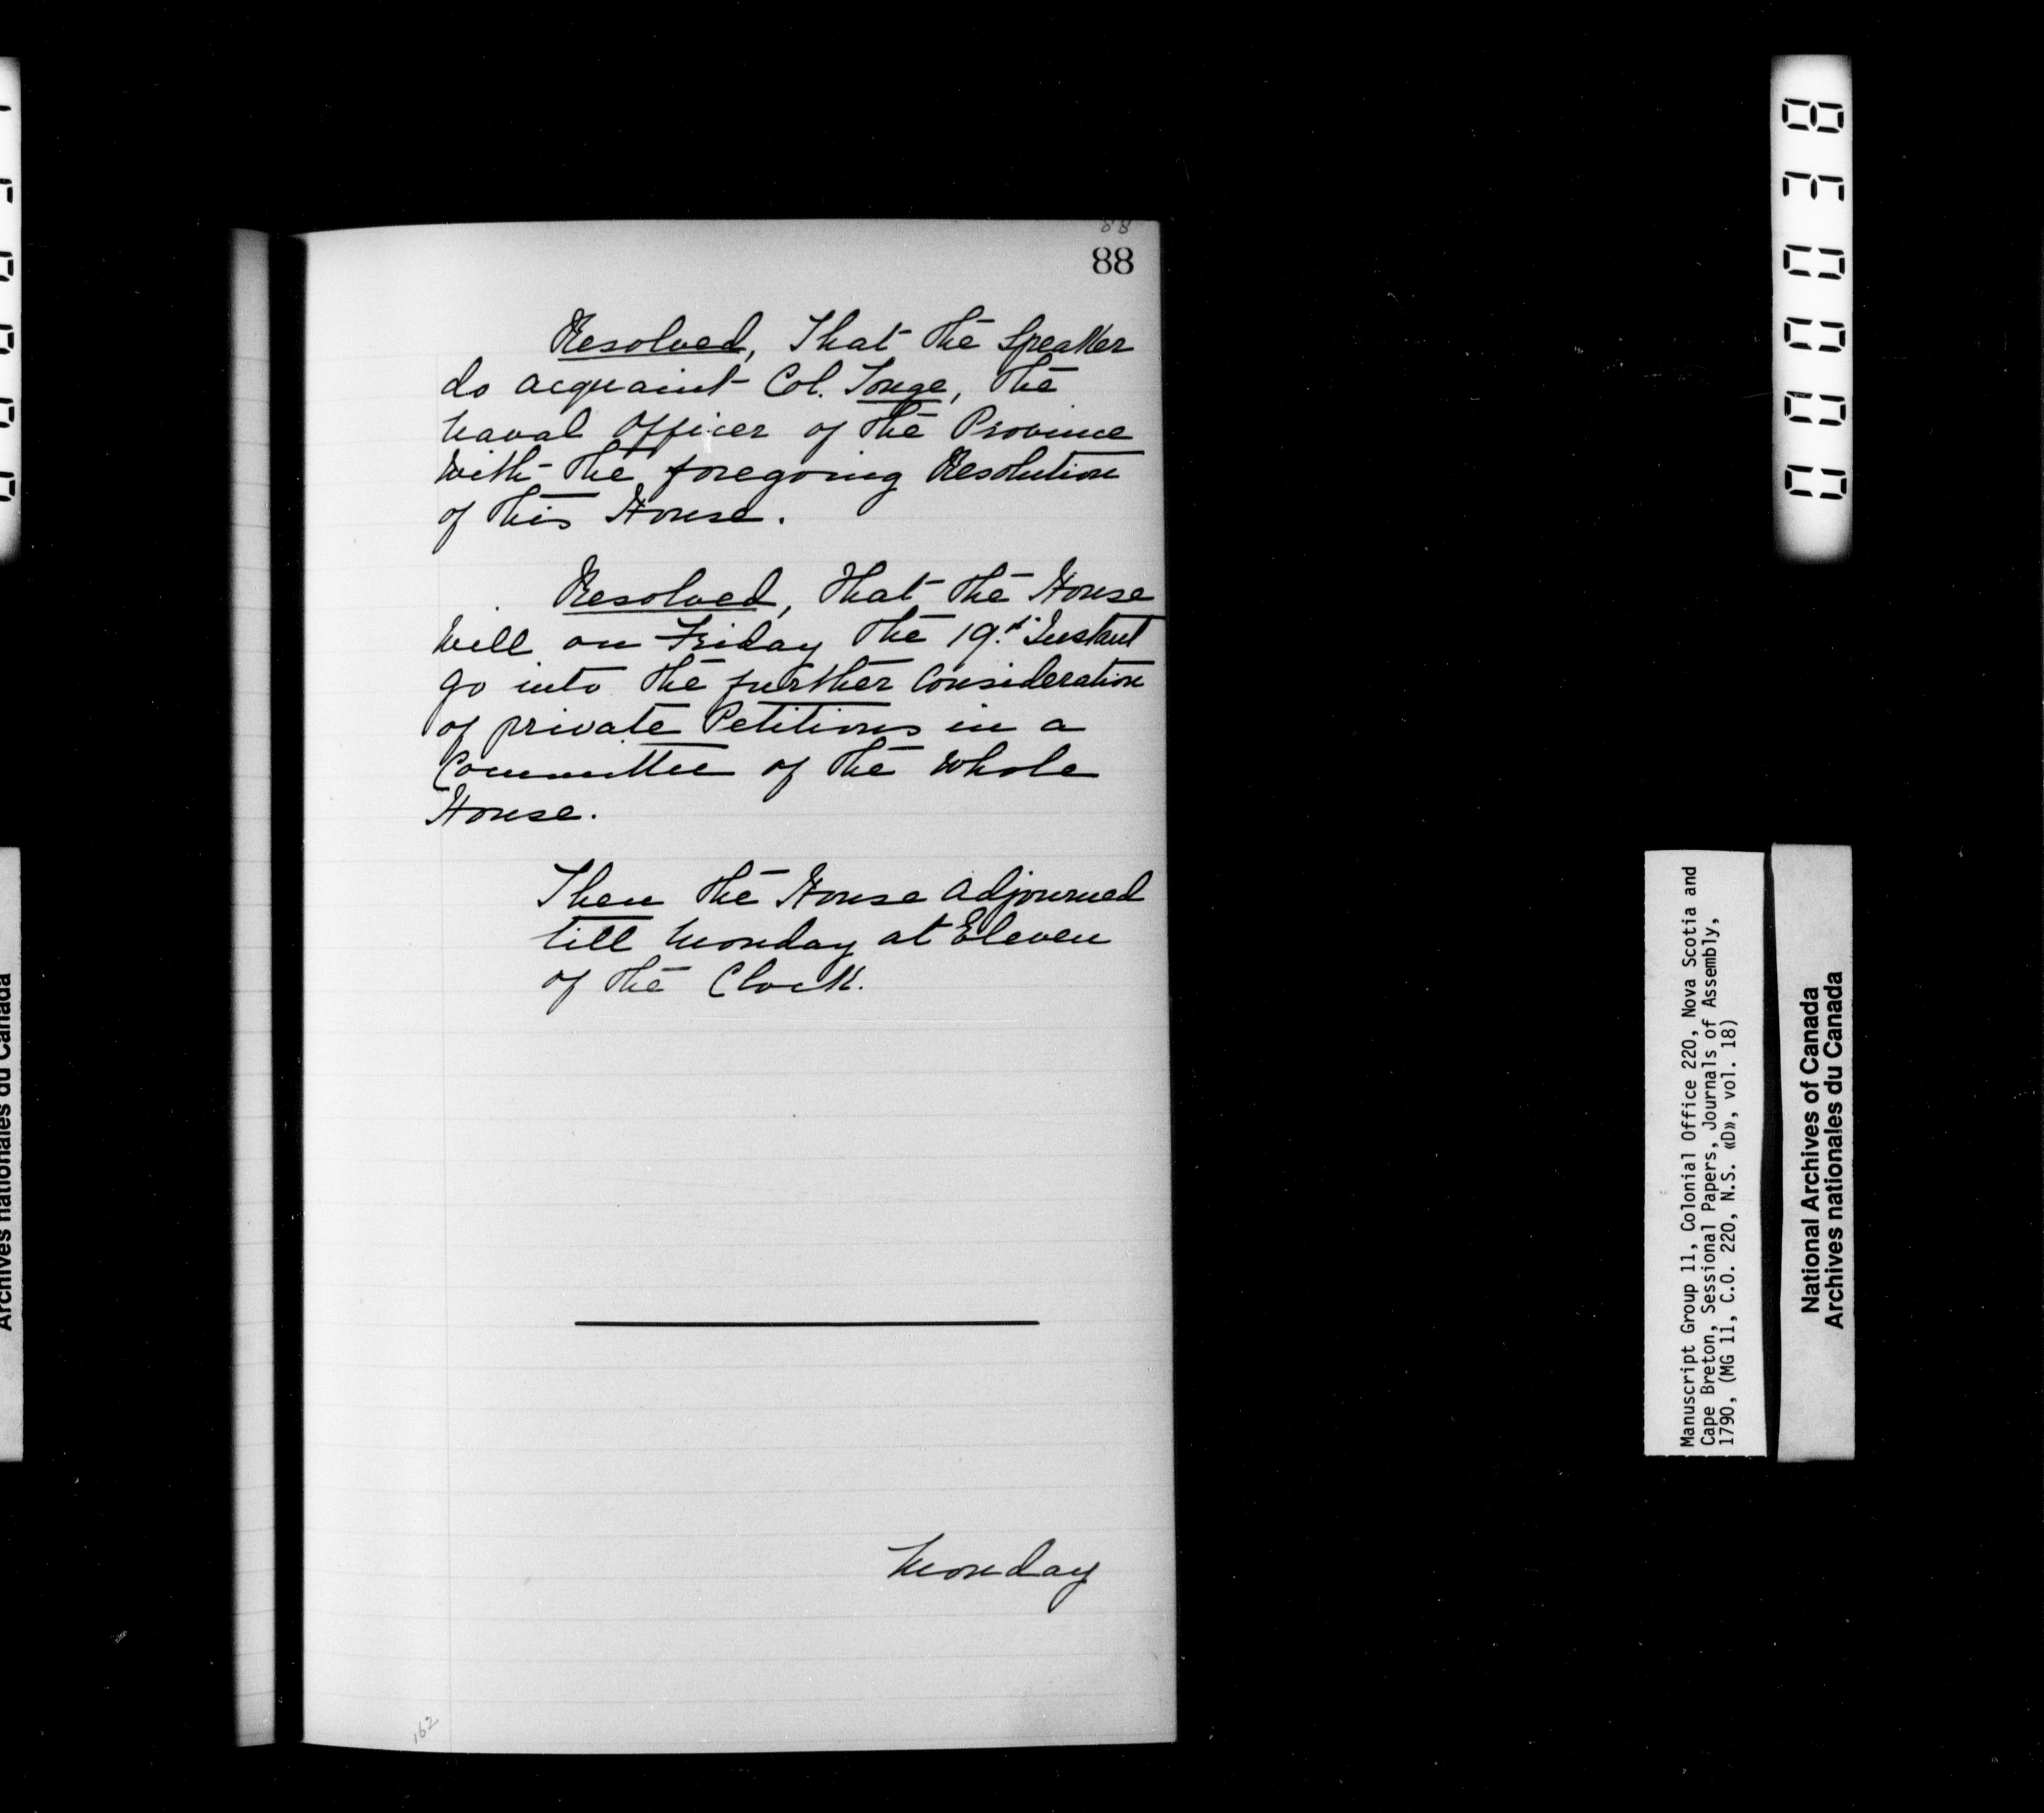 88
88
Resolved, That the Speaker
do acquaint Col. Tonge, the
Naval Officer of the Province
with the foregoing Resolution
of this House.
Resolved, That the House
will on Friday the 19.th Instant
go into the further Consideration
of private Petitions in a
Committee of the whole
House.
Then the House adjourned
till Monday at Eleven
of the Clock.
Monday
162
Manuscript Group 11, Colonial Office 220, Nova Scotia and
Cape Breton, Sessional Papers, Journals of Assembly,
1790, (MG 11, C.O. 220, N.S. «D», vol. 18)
National Archives of Canada
Archives nationales du Canada
Archives nationales du Canada